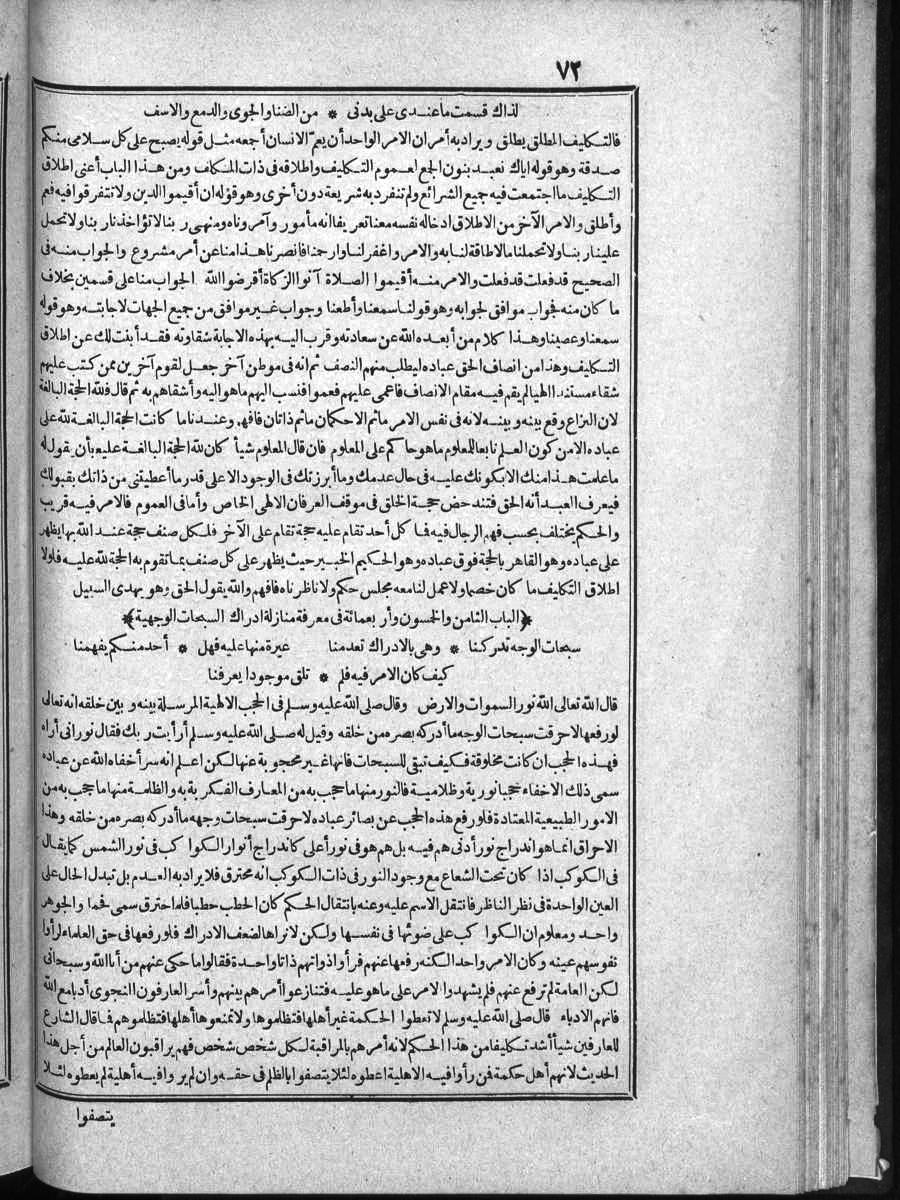 ٧٢
لذاك قسمت ما عندى على بدنى * من الضنا والجوى والدمع والاسف
فالتكليف المطلق يطلق ويراد به أمران الامر الواحد أن يعمّ الانسان أجمعه مثل قوله يصبح على كل سلامى منكم
صدقة وهو قوله اياك نعبد بنون الجمع لعموم التكليف واطلاقه فى ذات المكلف ومن هذا الباب أعنى اطلاق
التكليف ما اجتمعت فيه جميع الشرائع ولم تنفرد به شريعة دون أخرى وهو قوله ان أقيموا الدين ولا تتفرقوا فيه فعم
وأطلق والامر الآخر من الاطلاق ادخاله نفسه معنا تعريفا انه مأمور وآمر وناه ومنهى ربنا لا تؤاخذنا ربنا ولا تحمل
علينا ربنا ولا تحملنا ما لا طاقة لنا به والامر واغفر لنا وارحمنا فانصرنا هذا منا عن أمر مشروع والجواب منه فى
الصحيح قد فعلت قد فعلت والامر منه أقيموا الصلاة آتوا الزكاة أقرضوا الله الجواب منا على قسمين بخلاف
ما كان منه فجواب موافق لجوابه وهو قولنا سمعنا وأطعنا وجواب غير موافق من جميع الجهات لاجابته وهو قوله
سمعنا وعصينا وهذا كلام من أبعده الله عن سعادته وقرب اليه بهذه الاجابة شقاوته فقد أبنت لك عن اطلاق
التكليف وهذا من انصاف الحق عباده ليطلب منهم النصف ثم انه فى موطن آخر جعل لقوم آخرين ممن كتب عليهم
شقاء مستندا الهيا لم يقم فيه مقام الانصاف فاعمى عليهم فعموا فنسب اليهم ما هو اليه وأشقاهم به ثم قال فلله الحجة البالغة
لان النزاع وقع بينه وبينه لانه فى نفس الامر ما ثم الا حكمان ما ثم ذاتان فافهم وعندنا ما كانت الحجة البالغة لله على
عباده الا من كون العلم تابعا للمعلوم ما هو حاكم على المعلوم فان قال المعلوم شيأ كان لله الحجة البالغة عليه بأن يقول له
ما علمت هذا منك الا بكونك عليه فى حال عدمك وما أبرزتك فى الوجود الا على قدر ما أعطيتنى من ذاتك بقبولك
فيعرف العبد أنه الحق فتندحض حجة الخلق فى موقف العرفان الالهى الخاص وأما فى العموم فالامر فيه قريب
والحكم يختلف بحسب فهم الرجال فيه فما كل أحد تقام عليه حجة تقام على الآخر فلكل صنف حجة عند الله بها يظهر
على عباده وهو القاهر بالحجة فوق عباده وهو الحكيم الخبير حيث يظهر على كل صنف بما تقوم به الحجة لله عليه فلولا
اطلاق التكليف ما كان خصما ولا عمل لنا معه مجلس حكم ولا ناظرناه فافهم والله يقول الحق وهو يهدى السبيل
﴿الباب الثامن والخمسون وأربعمائة فى معرفة منازلة ادراك السبحات الوجهية﴾
سبحات الوجه تدركنا * وهى بالادراك تعدمنا غيرة منها عليه فهل * أحد منكم يفهمنا
كيف كان الامر فيه فلم * تلق موجودا يعرفنا
قال الله تعالى الله نور السموات والارض وقال صلى الله عليه وسلم فى الحجب الالهية المرسلة بينه وبين خلقه انه تعالى
لو رفعها لاحرقت سبحات الوجه ما أدركه بصره من خلقه وقيل له صلى الله عليه وسلم أرأيت ربك فقال نورانى أراه
فهذه الحجب ان كانت مخلوقة فكيف تبقى للسبحات فانها غير محجوبة عنها لكن اعلم انه سر أخفاه الله عن عباده
سمى ذلك الاخفاء حجبا نورية وظلامية فالنور منها ما حجب به من المعارف الفكرية به والظلمة منها ما حجب به من
الامور الطبيعية المعتادة فلو رفع هذه الحجب عن بصائر عباده لاحرقت سبحات وجهه ما أدركه بصره من خلقه وهذا
الاحراق انما هو اندراج نور أدنى هم فيه بل هم هو فى نور أعلى كاندراج أنوار الكواكب فى نور الشمس كما يقال
فى الكوكب اذا كان تحت الشعاع مع وجود النور فى ذات الكوكب انه محترق فلا يراد به العدم بل تبدل الحال على
العين الواحدة فى نظر الناظر فانتقل الاسم عليه وعنه بانتقال الحكم كان الحطب حطبا فلما احترق سمى فحما والجوهر
واحد ومعلوم ان الكواكب على ضوئها فى نفسها ولكن لا نراها لضعف الادراك فلو رفعها فى حق العلماء لرأوا
نفوسهم عينه وكان الامر واحدا لكنه رفعها عنهم فرأوا ذواتهم ذاتا واحدة فقالوا ما حكى عنهم من أنا الله وسبحانى
لكن العامة لم ترفع عنهم فلم يشهدوا الامر على ما هو عليه فتنازعوا أمرهم بينهم وأسر العارفون النجوى أدبا مع الله
فانهم الادباء قال صلى الله عليه وسلم لا تعطوا الحكمة غير أهلها فتظلموها ولا تمنعوها أهلها فتظلموهم فما قال الشارع
للعارفين شيأ أشد تكليفا من هذا الحكم لانه أمرهم بالمراقبة لكل شخص شخص فهم يراقبون العالم من أجل هذا
الحديث لانهم أهل حكمة فمن رأوا فيه الاهلية اعطوه لئلا يتصفوا بالظلم فى حقه وان لم يروا فيه أهلية لم يعطوه لئلا
يتصفوا